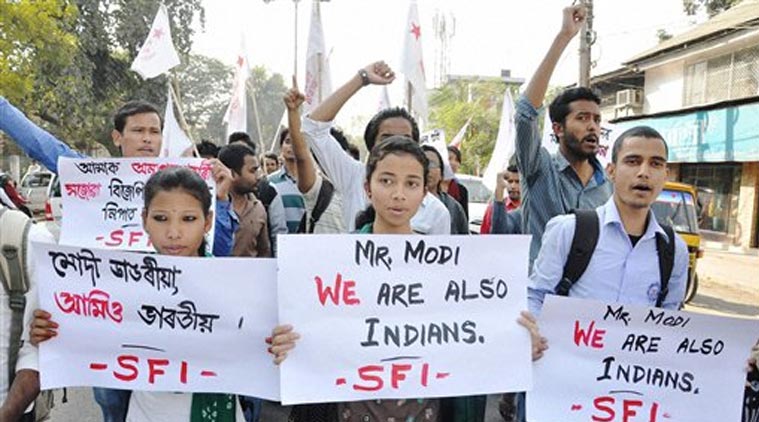 বিজেপি
নিপাত
SFI-
মোদী ডাঙৰীয়া,
আমিও ভাৰতীয় ।
- SFI -
MR. MODI
WE ARE ALSO
INDIANS.
- SFI -
MR. MODI
WE ARE ALSO
INDIANS.
- SFI -